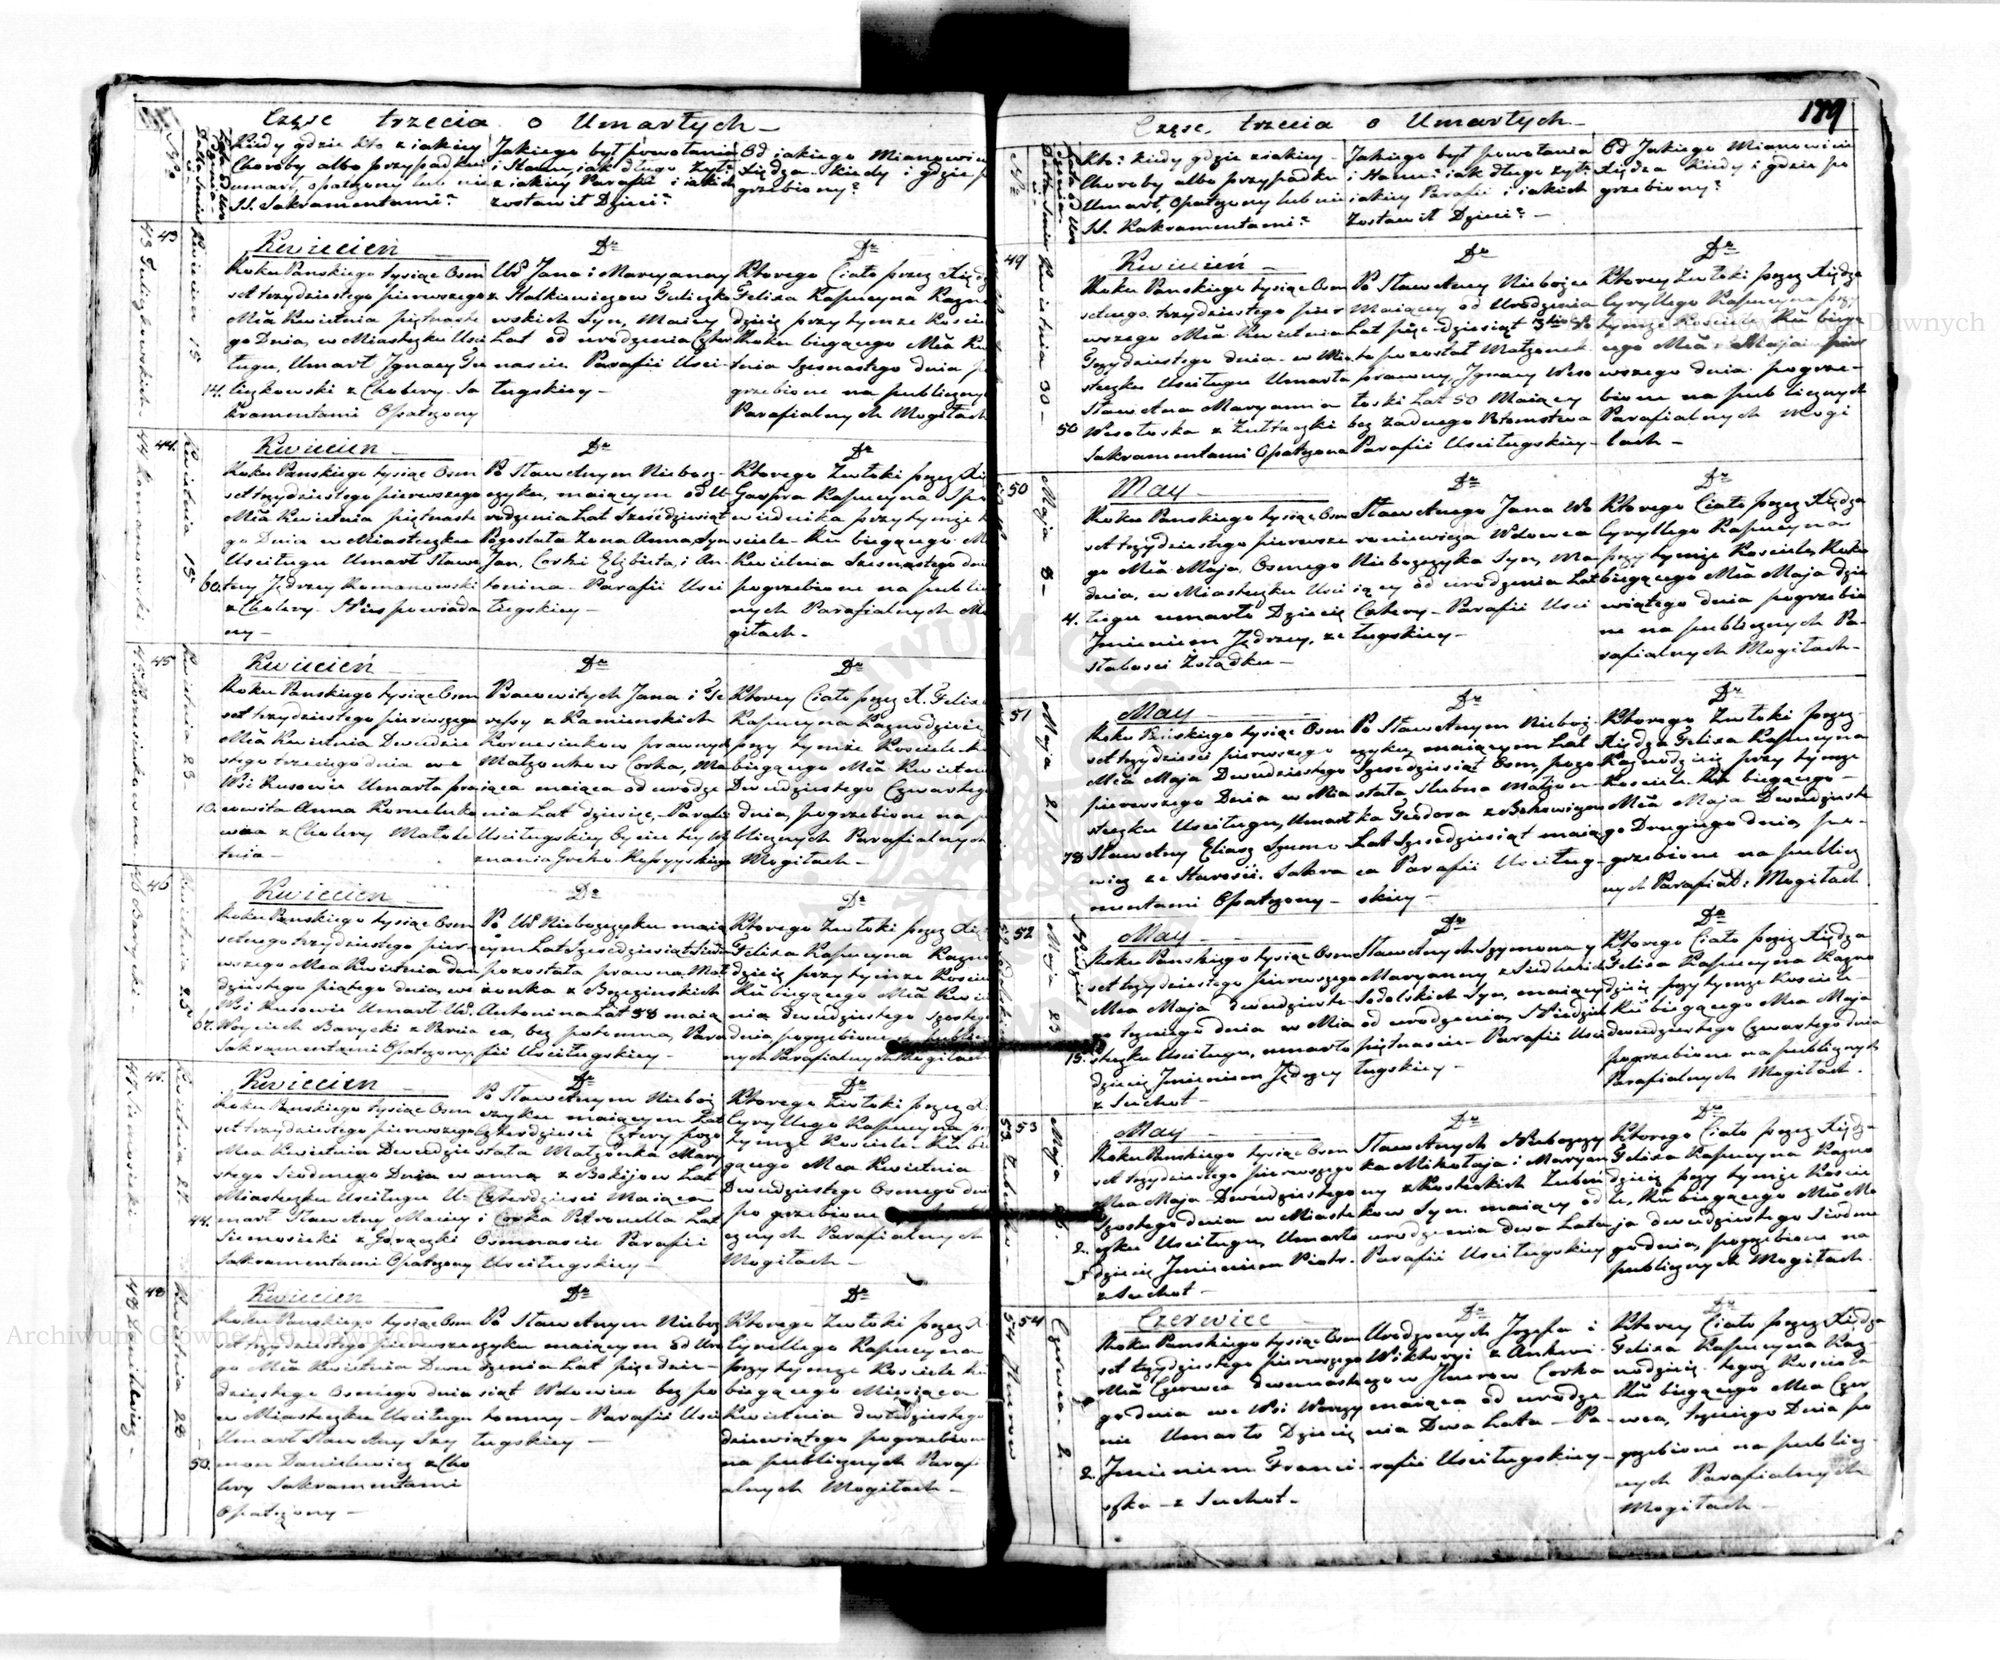 Część trzecia o Umarłych
Kiedy gdzie kto z jakiey
Choroby albo przypadku
umarł, opatrzony lub nie
SS. Sakramentami?
Jakiego był powołania
i Stanu, jak długo żył?
z iakiey Parafii i iakich
zostawił Dzieci?
Od iakiego Mianowicie
Xiędza kiedy i gdzie
grzebiony?
43
Kwietnia 15
14.
Kwiecień
Roku Pańskiego tysiąc Osm
set trzydziestego pierwszego
Mca Kwietnia piętnaste
go Dnia, w Miasteczku Uści
ługu, Umarł Ignacy Gu
liczkowski z Cholery. Sa
kramentami Opatrzony
Dto
Ur Jana i Maryanny
z Stalkiewiczow Guliczko
wskich Syn, Maiący
Lat od urodzenia Czter
naście Parafii Uści
ługskiey
Dto
Ktorego Ciało przez Xiędza
Felixa Kapucyna Kazno
dzieię przy tymże Koście
Roku biegącego Mca Kw
tnia Szesnastego dnia
grzebione na publicznych
Parafialnych Mogiłach
44.
Kwietnia 15
60.
Kwiecień
Roku Pańskiego tysiąc Osm
set trzydziestego pierwszego
Mca Kwietnia piętnaste
go Dnia w Miasteczku
Uściługu Umarł Sławe
tny Jędrzey Romanowski
z Cholery. Niespowiada
ny
Dto
Po Sławetnym Niebosz
czyku, maiącym od U
rodzenia Lat Sześćdziesiąt
Pozostała Żona Anna, Syn
Jan, Corki Elżbieta, i An
tonina. Parafii Uści
ługskiey
Dto
Ktorego Zwłoki przez Xię
Gaspra Kapucyna Spo
wiednika przy tymże K
ściele Ru biegącego M
Kwietnia Szesnastego dnia
pogrzebione na publi
nych Parafialnych Mo
giłach
45
Kwietnia 23
10.
Kwiecień
Roku Pańskiego tysiąc Osm
set trzydziestego pierwszego
Mca Kwietnia Dwudzie
stego trzeciego dnia we
Wsi Rusowie Umarła pra
cowita Anna
z Cholery Małole
tnia
Dto
Pracowitych Jana i Te
ressy z Kamienskich
prawnych
Małżonkow Corka, Ma
iąca od urodze
nia Lat dziesięć, Parafii
Uściługskiey
znania Greko-Rossyyskiego
Dto
Ktorey Ciało przez X. Felixa
Kapucyna Kaznodzieię
przy tymże Kościele
biegącego Mca Kwietnia
Dwudziestego Czwartego
dnia, pogrzebione na p
blicznych Parafialnych
Mogiłach
46
Kwietnia 25
67.
Kwiecień
Roku Pańskiego tysiąc Osm
setnego trzydziestego pier
wszego Mca Kwietnia dwu
dziestego piątego dnia, we
Wsi Rusowie Umarł Ur.
Woyciech Barycki z
Sakramentami Opatrzony
Dto
Po Ur Nieboszczyku maią
cym Lat Sześćdziesiąt Siedm
pozostała prawna Mał
żonka z Brzezinskich
Antonina Lat 58 maią
ca, bez potomna, Para
fii Uściługskiey
Dto
Ktorego Zwłoki przez Xię
Felixa Kapucyna Kazno
dzieię przy tymże Koście
Ru biegącego Mca Kwie
nia dwudziestego Szostego
dnia pogrzebione na publicz
nych Parafialnych Mogiłach
Kwietnia 27
44.
Kwiecień
Roku Pańskiego tysiąc Osm
set trzydziestego pierwszego
Mca Kwietnia Dwudzie
stego Siodmego Dnia w
Miasteczku Uściługu U
marł Sławetny Maciey
Siemosicki z Gorączki
Sakramentami Opatrzony
Dto
Po Sławetnym Niebosz
czyku maiącym Lat
Czterdzieści Cztery pozo
stała Małżonka Mary
anna z Bokijow Lat
Czterdzieści Maiąca
i Corka Petronella Lat
Osmnaście Parafii
Uściługskiey
Dto
Ktorego Zwłoki przez X.
Cyryllego Kapucyna p
tymże Kościele Ru bie
gącego Mca Kwietnia
Dwudziestego Osmego dni
pogrzebione
cznych Parafialnych
Mogiłach
48
48 Danilewicz
Kwietnia 28
50.
Kwiecień
Roku Pańskiego tysiąc Osm
set trzydziestego pierwsze
go Mca Kwietnia Dwu
dziestego Osmego dnia
w Miasteczku Uściługu
Umarł Sławetny Szy
mon Danilewicz z Cho
lery Sakramentami
Opatrzony
Dto
Po Sławetnym Niebosz
czyku maiącym od Uro
dzenia Lat pięćdzie
siąt Wdowiec bez po
tomny Parafii Uści
ługskiey
Dto
Ktorego Zwłoki przez X.
Cyryllego Kapucyna
przy tymże Kościele Ru
biegącego Miesiąca
Kwietnia dwudziestego
dziewiątego pogrzebione
na publicznych Parafi
alnych Mogiłach
189
Część trzecia o Umarłych
Kto? kiedy gdzie z iakiey
Choroby albo przypadku
Umarł, Opatrzony lub nie
SS. Sakramentami?
Jakiego był powołania
i Stanu? jak długo żył?
iakiey Parafii i iakich
Zostawił Dzieci?
Od Jakiego Mianowicie
Xiędza kiedy i gdzie po
grzebiony?
49
Kwietnia 30
50
Kwiecień
Roku Pańskiego tysiąc Osm
setnego trzydziestego pier
wszego Mca Kwietnia
Trzydziestego dnia w Mia
steczku Uściługu Umarła
Sławetna Maryanna
Wesołoska z Zutłaczki
Sakramentami Opatrzona
Dto
Po Sławetney Nieboszce
Maiącey od Urodzenia
Lat pięćdziesiąt
pozostał Małżonek
prawny Ignacy Weso
łoski Lat 50 Maiący
bez żadnego Potomstwa
Parafii Uściługskiey
Dto
Ktorey Zwłoki przez Xiędza
Cyryllego Kapucyna przy
tymże Kościele Ru biegą
cego Mca Maja pier
wszego dnia pogrze
bione na publicznych
Parafialnych Mogi
łach
50
Maja 8
4.
May
Roku Pańskiego tysiąc Osm
set trzydziestego pierwsze
go Mca Maja, Osmego
dnia, w Miasteczku Uści
ługu umarło Dziecię
Imieniem Jędrzey, ze
słabości Żołądku
Dto
Sławetnego Jana Wo
roniewicza Wdowca
Nieboszczyka Syn, Ma
iący od urodzenia Lat
Cztery. Parafii Uści
ługskiey
Dto
Ktorego Ciało przez Xiędza
Cyryllego Kapucyna
przy tymże Kościele, Roku
biegącego Mca Maja dzie
wiątego dnia pogrzebio
ne na publicznych Pa
rafialnych Mogiłach
51
Maja 21
78
May
Roku Pańskiego tysiąc Osm
set trzydzieści pierwszego
Mca Maja Dwudziestego
pierwszego Dnia w Mia
steczku Uściługu, Umarł
Sławetny Eliasz Szymo
wicz ze Starości. Sakra
mentami Opatrzony
Dto
Po Sławetnym Niebosz
czyku maiącym Lat
Siedmdziesiąt Osm, pozo
stała ślubna Małżon
ka Teodora z Bohowiczow
Lat Sześćdziesiąt maią
ca Parafii Uściług
skiey
Dto
Ktorego Zwłoki przez
Xiędza Felixa Kapucyna
Kaznodzieię przy tymże
Kościele Ru biegącego
Mca Maja Dwudzieste
go Drugiego dnia, po
grzebione na publicz
nych Parafial: Mogiłach
52
Maja 23
Niedziel
15.
May
Roku Pańskiego tysiąc Osm
set trzydziestego pierwszego
Mca Maja dwudzieste
go trzeciego dnia w Mia
steczku Uściługu, umarło
dziecię Imieniem Jędrzey
z Suchot
Dto
Sławetnych Szymona y
Maryanny z Siedleckich
Sodolskich Syn, maiący
od urodzenia, Niedziel
piętnaście Parafii Uści
ługskiey
Dto
Ktorego Ciało przez Xiędza
Felixa Kapucyna Kazno
dzieię przy tymże Kościele
Ru biegącego Mca Maja
dwudziestego Czwartego dnia
pogrzebione na publicznych
Parafialnych Mogiłach.
53
Maja 26.
2.
May
Roku Pańskiego tysiąc Osm
set trzydziestego pierwszego
Mca Maja Dwudziestego
Szostego dnia w Miaste
czku Uściługu, Umarło
dziecię Imieniem Piotr.
z Suchot
Dto
Sławetnych Nieboszczy
ka Mikołaja i Maryan
ny z Kosteckich Zubień
kow Syn. maiący od
urodzenia dwa Lata
Parafii Uściługskiey
Dto
Ktorego Ciało przez Xiędz
Felixa Kapucyna Kazno
dzieię przy tymże Koście
le, Ru biegącego Mca Ma
ja dwudziestego Siodme
go dnia, pogrzebione na
publicznych Mogiłach.
54
Czerwca 2.
2.
Czerwiec
Roku Pańskiego tysiąc Osm
set trzydziestego pierwszego
Mca Czerwca
go dnia we Wsi
Umarło Dziecię
Imieniem Franci
szka z Suchot
Dto
Urodzonych Jozefa i
Wiktoryi z
Corka
maiąca od urodze
nia Dwa Lata Pa
rafii Uściługskiey
Dto
Ktorey Ciało przez Xiędza
Felixa Kapucyna Kaz
nodzieię tegoż Kościoła
Ru biegącego Mca Czer
wca, trzeciego Dnia po
grzebione na publicz
nych Parafialnych
Mogiłach
Archiwum Główne Akt Dawnych
Archiwum Główne Akt Dawnych